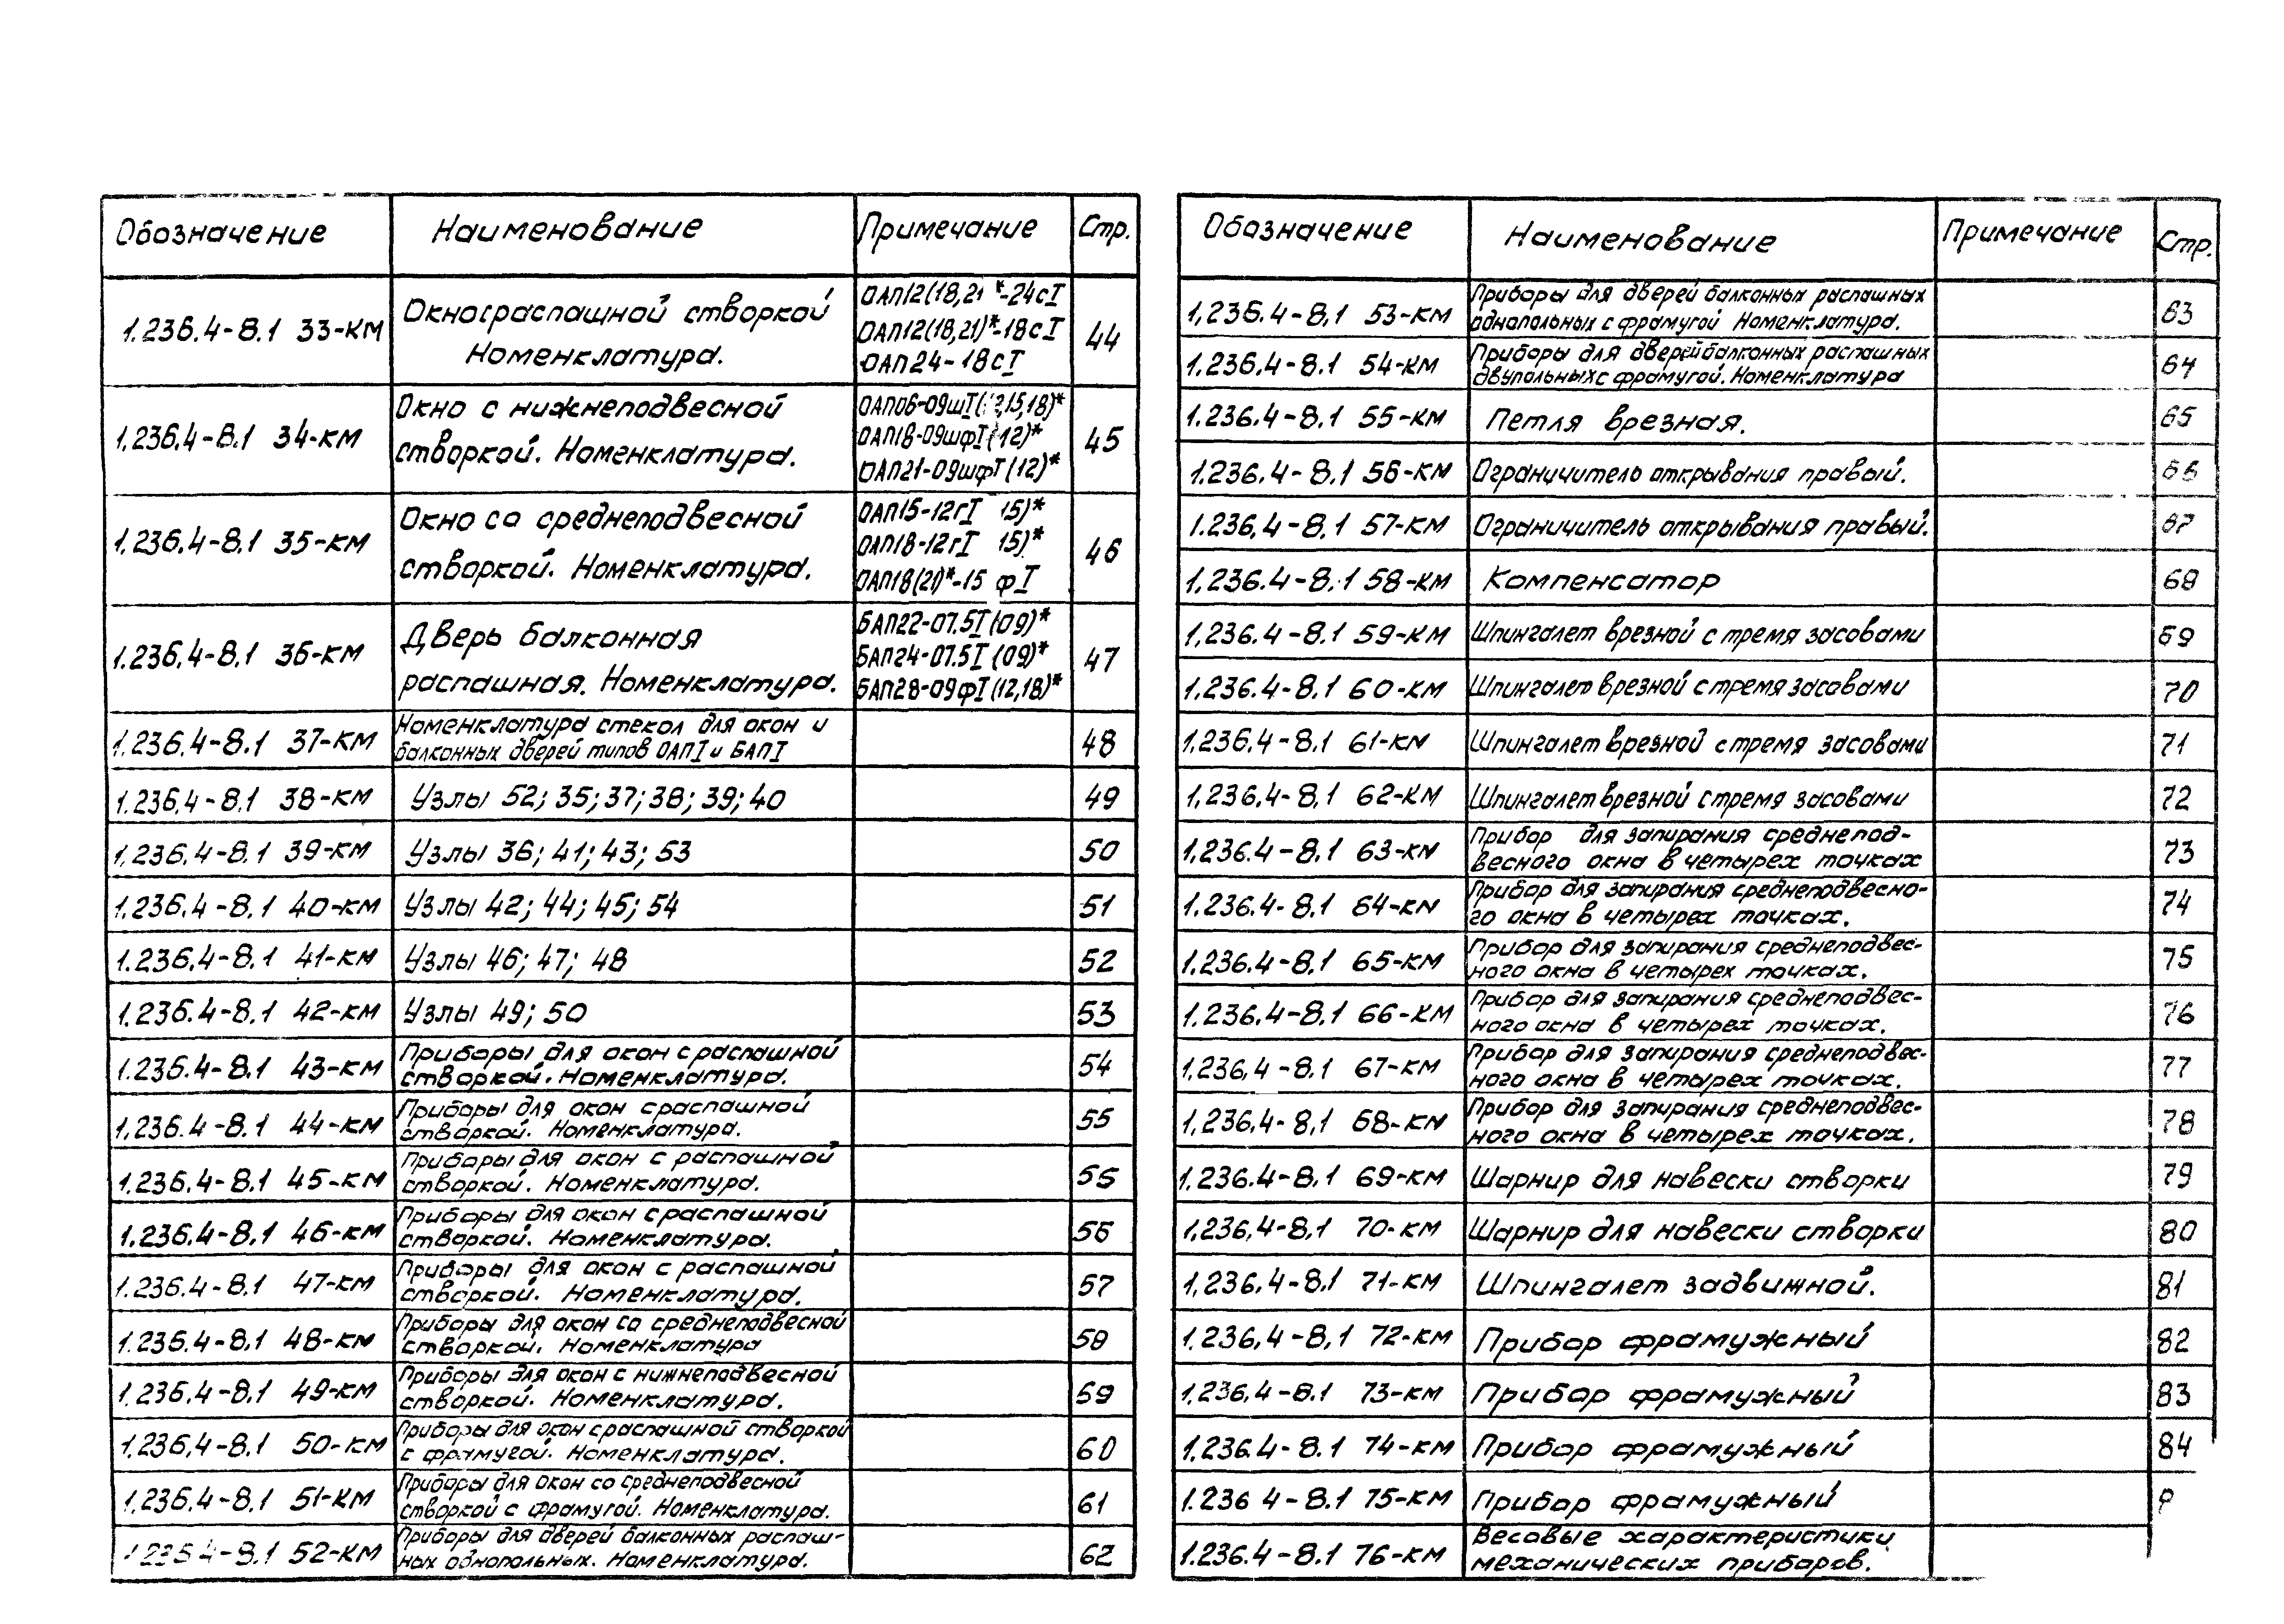 Обозначение Наименование Примечание Стр.
1.236.4-8.1 33-КМ Окно с распашной створкой Номенклатура. 44
ОАП12(18,21 *-24сI
ОАП12(18,21)*-18сI
ОАП24-18сI
1.236.4-8.1 34-КМ Окно с нижнеподвесной створкой. Номенклатура. 45
ОАП06-09шI( 2,15,18)*
ОАП18-09шфI(12)*
ОАП21-09шфI(12)*
1.236.4-8.1 35-КМ Окно со среднеподвесной створкой. Номенклатура. 46
ОАП15-12гI 15)*
ОАП18-12гI 15)*
ОАП18(21)*-15 фI
1.236.4-8.1 36-КМ Дверь балконная распашная. Номенклатура. 47
БАП22-07.5I(09)*
БАП24-07.5I(09)*
БАП28-09фI(12,18)*
1.236.4-8.1 37-КМ Номенклатура стекол для окон и балконных дверей типов ОАПI и БАПI 48
1.236.4-8.1 38-КМ Узлы 52; 35; 37; 38; 39; 40 49
1.236.4-8.1 39-КМ Узлы 36; 41; 43; 53 50
1.236.4-8.1 40-КМ Узлы 42; 44; 45; 54 51
1.236.4-8.1 41-КМ Узлы 46; 47; 48 52
1.236.4-8.1 42-КМ Узлы 49; 50 53
1.236.4-8.1 43-КМ Приборы для окон с распашной створкой. Номенклатура. 54
1.236.4-8.1 44-КМ Приборы для окон с распашной створкой. Номенклатура. 55
1.236.4-8.1 45-КМ Приборы для окон с распашной створкой. Номенклатура. 55
1.236.4-8.1 46-КМ Приборы для окон с распашной створкой. Номенклатура. 56
1.236.4-8.1 47-КМ Приборы для окон с распашной створкой. Номенклатура. 57
1.236.4-8.1 48-КМ Приборы для окон со среднеподвесной створкой. Номенклатура 58
1.236.4-8.1 49-КМ Приборы для окон с нижнеподвесной створкой. Номенклатура. 59
1.236.4-8.1 50-КМ Приборы для окон с распашной створкой с фрамугой. Номенклатура. 60
1.236.4-8.1 51-КМ Приборы для окон со среднеподвесной створкой с фрамугой. Номенклатура. 61
1.236.4-8.1 52-КМ Приборы для дверей балконных распаш-
ных однопольных. Номенклатура. 62
Обозначение Наименование Примечание Стр.
1.236.4-8.1 53-КМ Приборы для дверей балконных распашных однопольных с фрамугой Номенклатура. 63
1.236.4-8.1 54-КМ Приборы для дверей балконных распашных двупольных с фрамугой. Номенклатура 64
1.236.4-8.1 55-КМ Петля врезная. 65
1.236.4-8.1 56-КМ Ограничитель открывания правый. 66
1.236.4-8.1 57-КМ Ограничитель открывания правый. 67
1.236.4-8.1 58-КМ Компенсатор 68
1.236.4-8.1 59-КМ Шпингалет врезной с тремя засовами 69
1.236.4-8.1 60-КМ Шпингалет врезной с тремя засовами 70
1.236.4-8.1 61-КМ Шпингалет врезной с тремя засовами 71
1.236.4-8.1 62-КМ Шпингалет врезной с тремя засовами 72
1.236.4-8.1 63-КМ Прибор для запирания среднепод-
весного окна в четырех точках 73
1.236.4-8.1 64-КМ Прибор для запирания среднеподвесно-
го окна в четырех точках. 74
1.236.4-8.1 65-КМ Прибор для запирания среднеподвес-
ного окна в четырех точках. 75
1.236.4-8.1 66-КМ Прибор для запирания среднеподвес-
ного окна в четырех точках. 76
1.236.4-8.1 67-КМ Прибор для запирания среднеподвес-
ного окна в четырех точках. 77
1.236.4-8.1 68-КМ Прибор для запирания среднеподвес-
ного окна в четырех точках. 78
1.236.4-8.1 69-КМ Шарнир для навески створки 79
1.236.4-8.1 70-КМ Шарнир для навески створки 80
1.236.4-8.1 71-КМ Шпингалет задвижной. 81
1.236.4-8.1 72-КМ Прибор фрамужный 82
1.236.4-8.1 73-КМ Прибор фрамужный 83
1.236.4-8.1 74-КМ Прибор фрамужный 84
1.236 4-8.1 75-КМ Прибор фрамужный
1.236.4-8.1 76-КМ Весовые характеристики механических приборов.